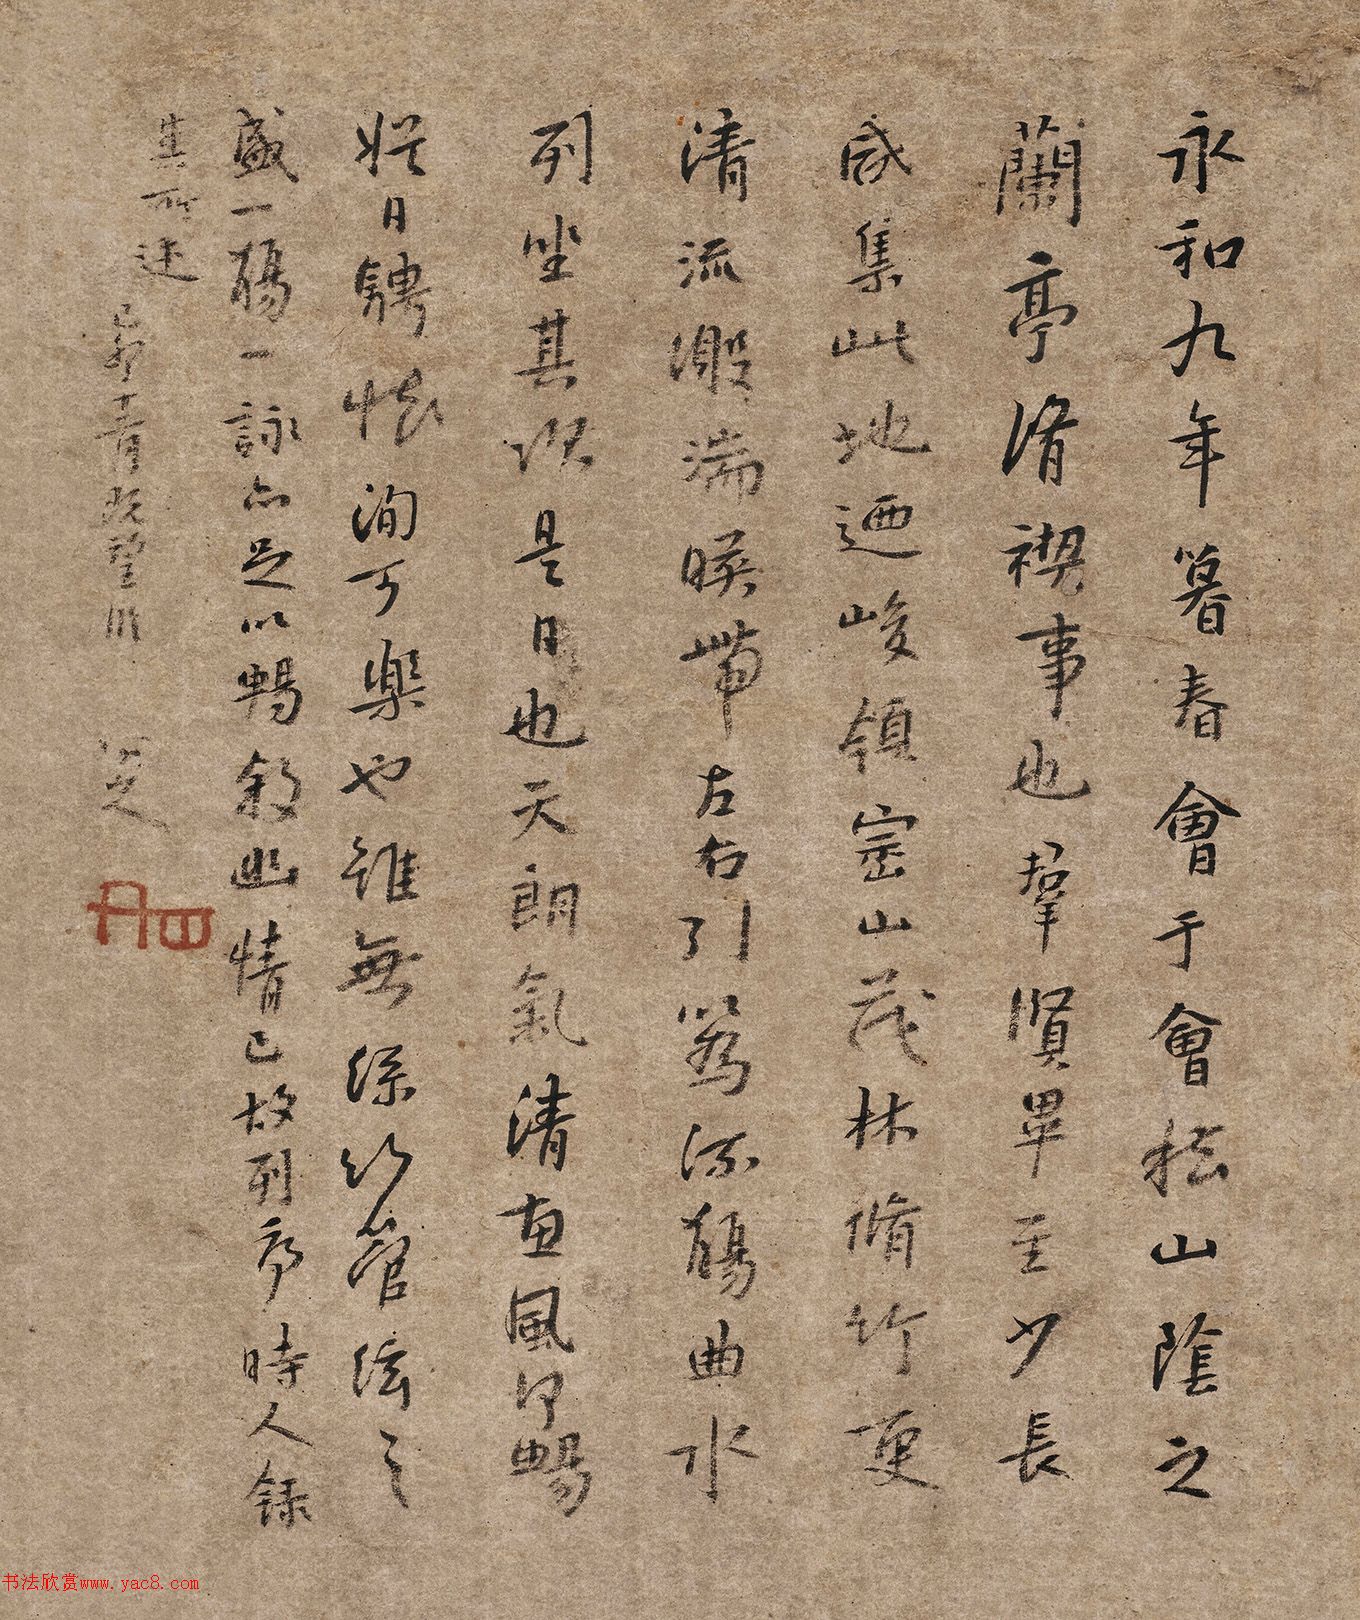 永和九年暮春會于會稽山陰之
蘭亭脩禊事也羣賢畢至少長
咸集此地迺峻領崇山茂林脩竹更
清流激湍暎帶左右引為流觴曲水
列坐其次是日也天朗氣清惠風和暢
娛日騁懷洵可樂也雖無絲竹管絃之
盛一觴一詠亦足以暢敘幽情已故列序時人錄
其所述
己卯既望臨
八大山人
书法欣赏www.yac8.com